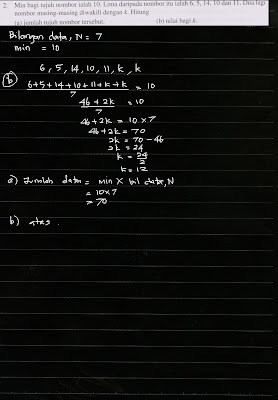 2. Min bagi tujuh nombor ialah 10. Lima daripada nombor itu ialah 6, 5, 14, 10 dan 11. Dua lagi
nombor masing-masing diwakili dengan k. Hitung
(a) jumlah tujuh nombor tersebut. (b) nilai bagi k.
Bilangan data, N = 7
min = 10
6, 5, 14, 10, 11, k, k
(b) 6+5+14+10+11+k+k = 10
7
46 + 2k = 10
7
46 + 2k = 10 x 7
46 + 2k = 70
2k = 70 - 46
2k = 24
k = 24
2
k = 12
a) Jumlah data = min x bil data, N
= 10x7
= 70
b) atas.